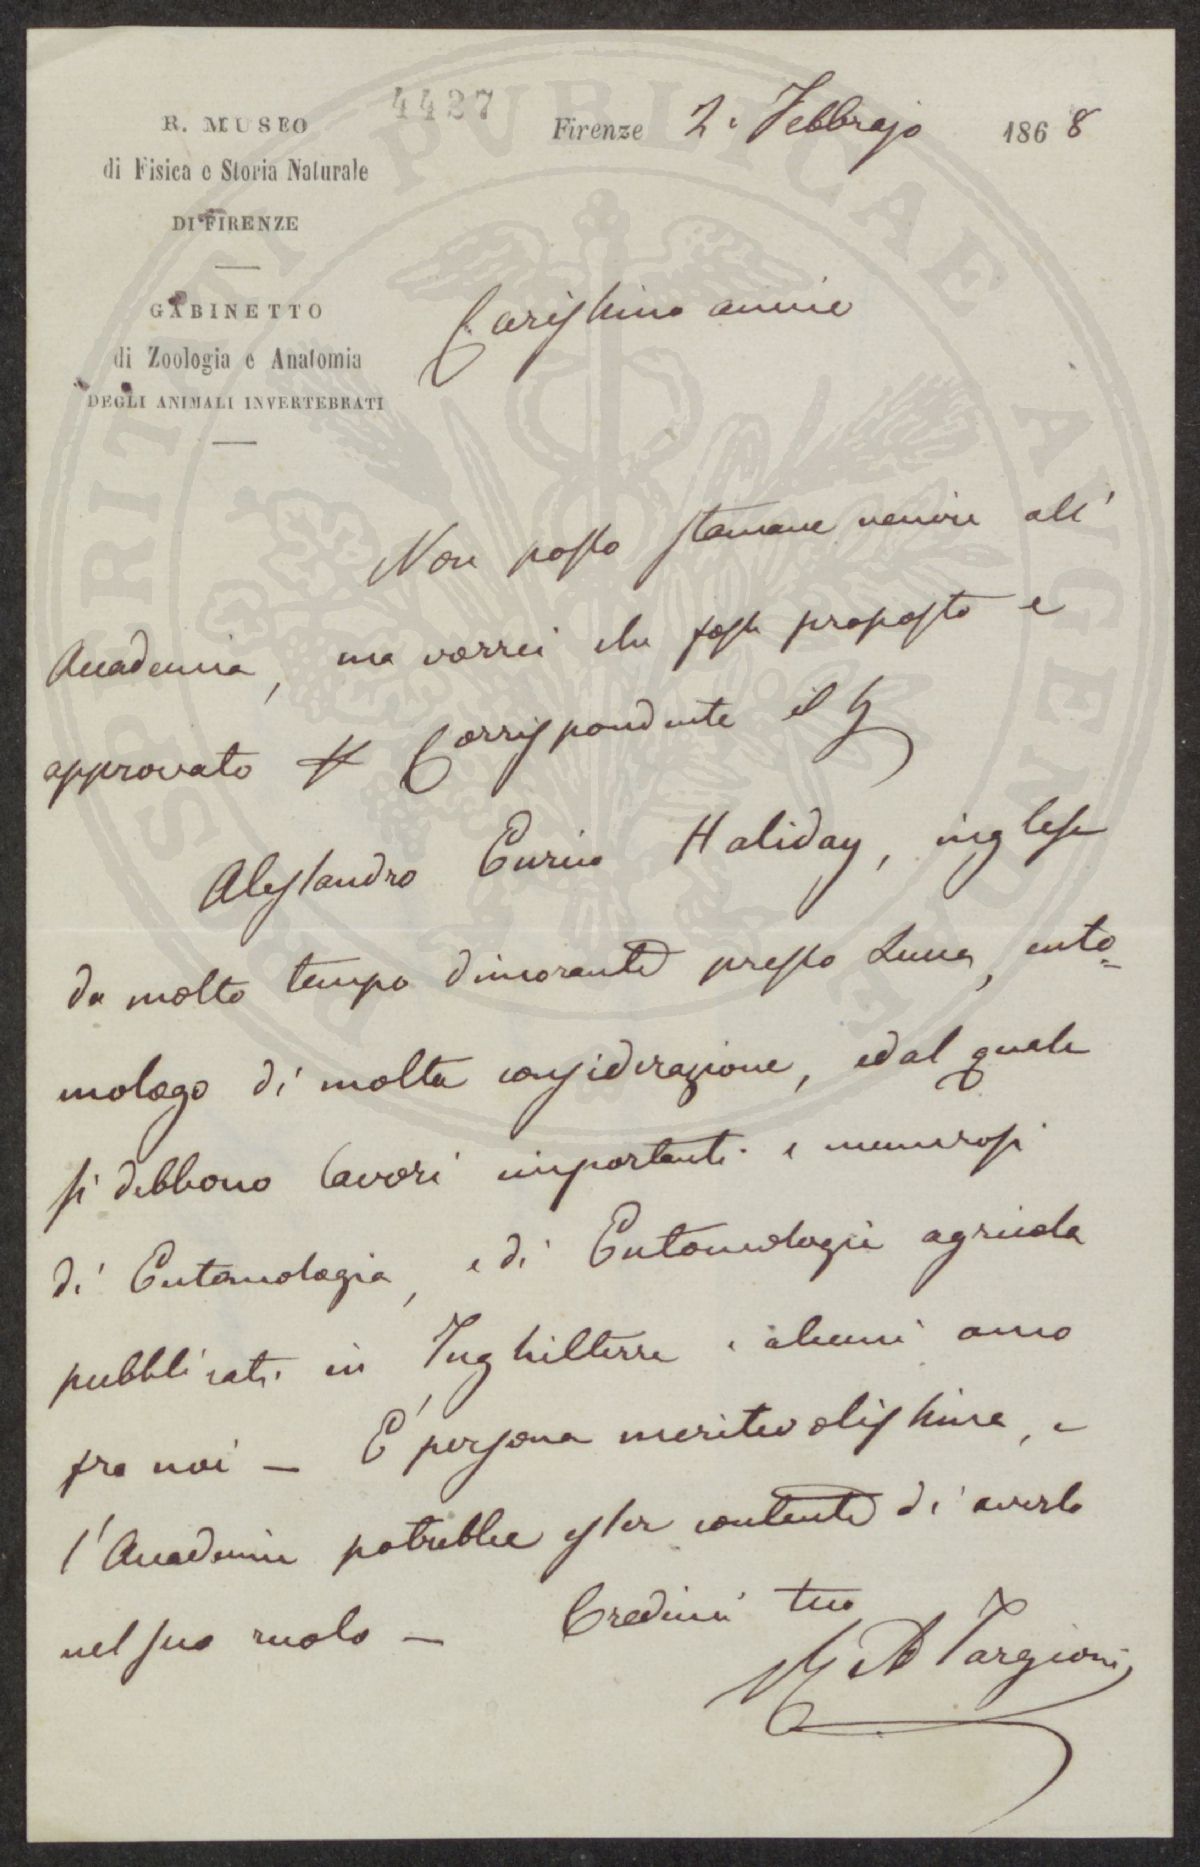 4427
R. MUSEO
di Fisica e Storia Naturale
DI FIRENZE
GABINETTO
di Zoologia e Anatomia
DEGLI ANIMALI INVERTEBRATI
Firenze 2. Febbrajo 1868
Carissimo amico
Non posso stamane venire all'
Accademia, ma vorrei che fosse proposto e
approvato Corrispondente il Sg
Alessandro Enrico Haliday, inglese
da molto tempo dimorante presso Lucca, ento=
mologo di molta considerazione, ed al quale
si debbono lavori importanti e numerosi
di Entomologia, e di Entomologia agricola
pubblicati in Inghilterra e alcuni anco
fra noi — È persona meritevolissima, e
l'Accademia potrebbe esser contenta di averlo
nel suo ruolo — Credimi tuo
A Targioni
PUBLICAE
PROSPERITATI
AVGENDAE